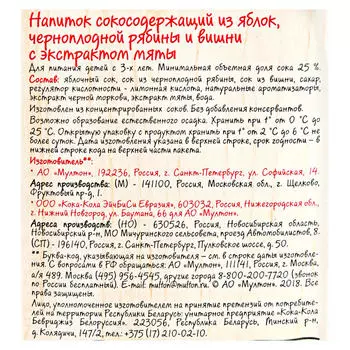 Напиток сокосодержащий из яблок,
черноплодной рябины и вишни
с экстрактом мяты
Для питания детей с 3-х лет. Минимальная объемная доля сока 25 %.
Состав: яблочный сок, сок из черноплодной рябины, сок из вишни, сахар,
регулятор кислотности - лимонная кислота, натуральные ароматизаторы,
экстракт черной моркови, экстракт мяты, вода.
Изготовлен из концентрированных соков. Без добавления консервантов.
Возможно образование естественного осадка. Хранить при t° от 0 °C до
25 °C. Открытую упаковку с продуктом хранить при t° от 2 °C до 6 °C не
более суток. Дата изготовления указана в верхней строке, срок годности - в
нижней строке кода на верхней части пакета.
Изготовитель**:
* АО „Мултон", 192236, Россия, г. Санкт-Петербург, ул. Софийская, 14.
Адреса производства: (М) - 141100, Россия, Московская обл., г. Щелково,
Фруктовый пр-д, 1.
* ООО „Кока-Кола ЭйчБиСи Евразия", 603032, Россия, Нижегородская обл.,
г. Нижний Новгород, ул. Баумана, 66 для АО „Мултон".
Адреса производства: (НО) - 630526, Россия, Новосибирская область,
Новосибирский р-н, МО Мичуринского сельсовета, проезд Автомобилистов, 8.
(СП) - 196140, Россия, г. Санкт-Петербург, Пулковское шоссе, д. 50.
** Буква-код, указывающая на изготовителя - см. в строке даты изготовле-
ния. С вопросами в РФ обращаться: АО „Мултон", 111141, Россия, г. Москва,
а/я 489. Москва (495) 956-4544, другие города 8-800-200-7720 (звонок по
России бесплатный). E-mail: multon@multon.ru. © АО „Мултон". 2018. Все
права защищены.
Лицо, уполномоченное изготовителем на принятие претензий от потребите-
лей на территории Республики Беларусь: унитарное предприятие „Кока-Кола
Бевриджиз Белоруссия". 223056, Республика Беларусь, Минский р-н,
д. Колядичи, 147/2, тел.: +375 (17) 210-02-10.